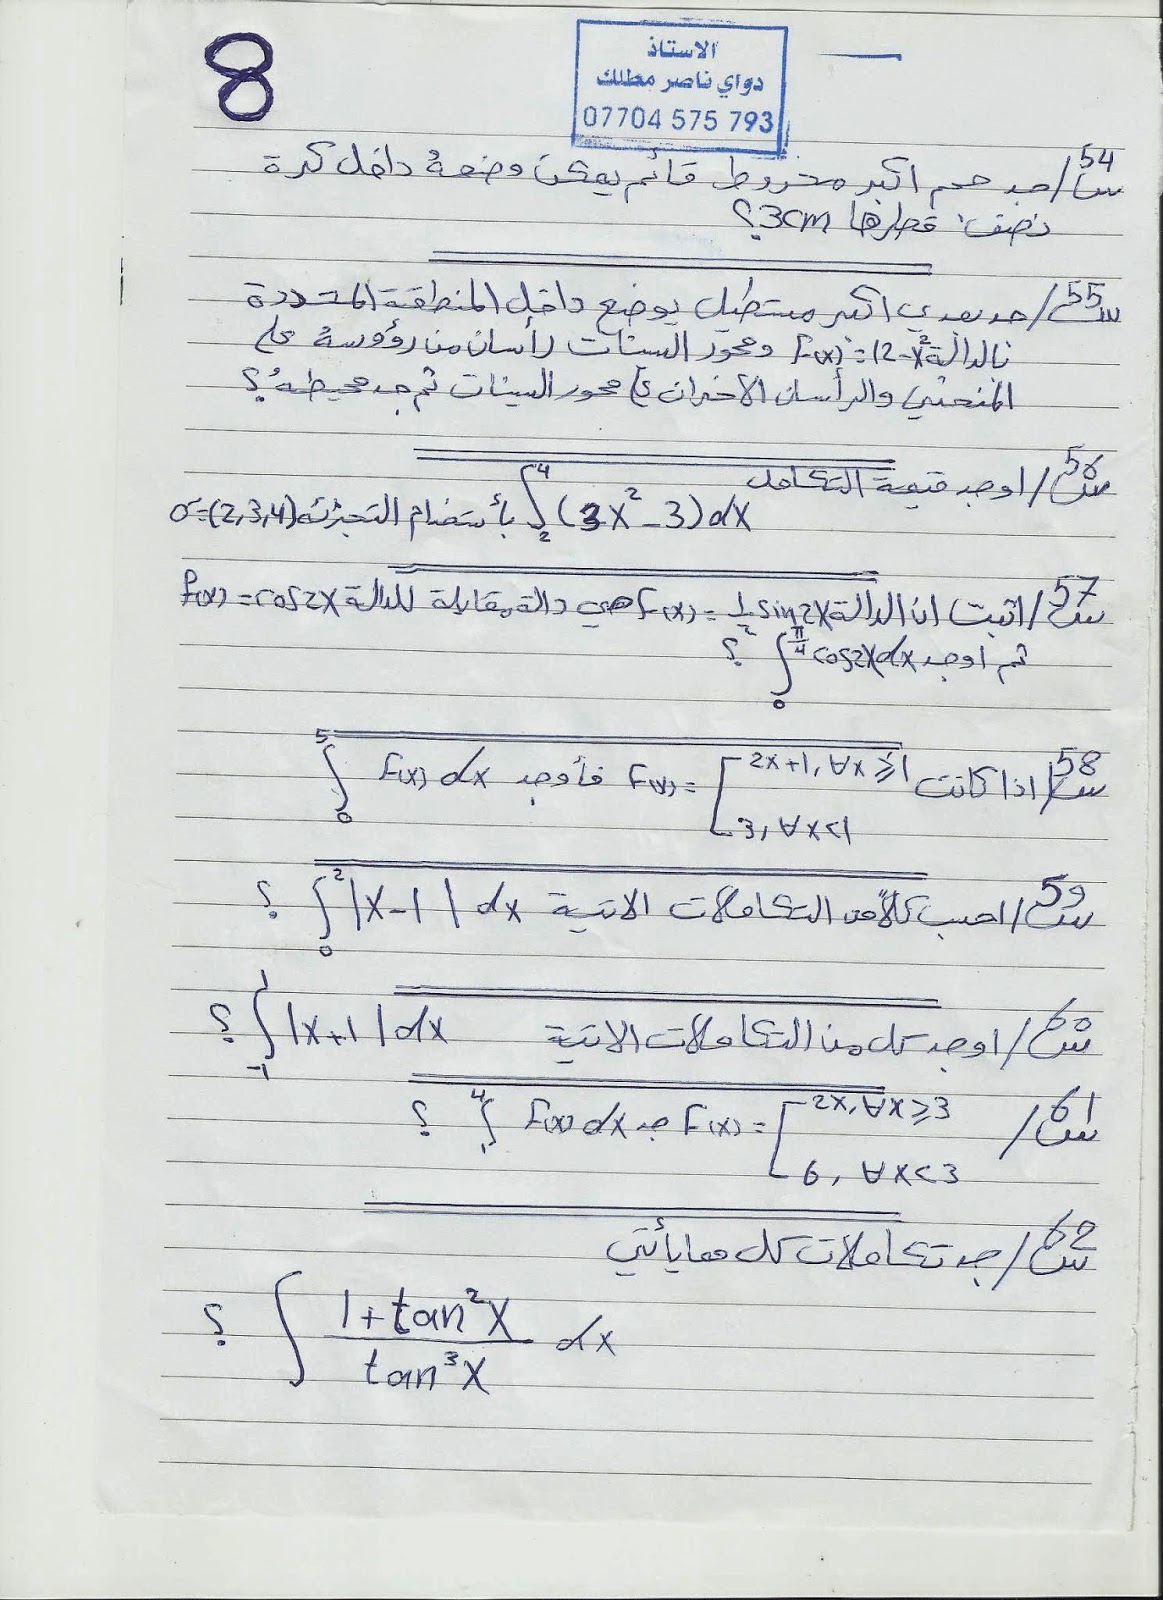 8
الاستاذ
دواي ناصر مطلك
07704 575 793
س54/ جد حجم اكبر مخروط قائم يمكن وضعهُ داخل كرة
نصف قطرها 3cm؟
س55/ جد بعدي اكبر مستطيل يوضع داخل المنطقة المحددة
بالدالة f(x)=12-x² ومحور السينات رأسان من رؤوسهُ على
المنحني والرأسان الاخران على محور السينات ثم جد محيطهُ؟
س56/ اوجد قيمة التكامل
∫₂⁴ (3x²-3)dx بأستخدام التجزئه σ=(2,3,4)
س57/ اثبت ان الدالة F(x)=½ sin2x هي دالة مقابلة للدالة f(x)=cos2x
ثم اوجد ∫₀^(π/4) cos2x dx ؟
س58/ اذا كانت f(x)=[2x+1, ∀x≥1
3, ∀x<1 فأوجد ∫₀⁵ f(x) dx
س59/ احسب كلاً من التكاملات الاتية ∫₀² |x-1| dx ؟
س60/ اوجد كل من التكاملات الاتية ∫₋₁¹ |x+1| dx ؟
س61/ f(x)=[2x, ∀x≥3
6, ∀x<3 جد ∫₁⁴ f(x) dx ؟
س62/ جد تكاملات كل ممايأتي
∫ (1+tan²x)/(tan³x) dx ؟